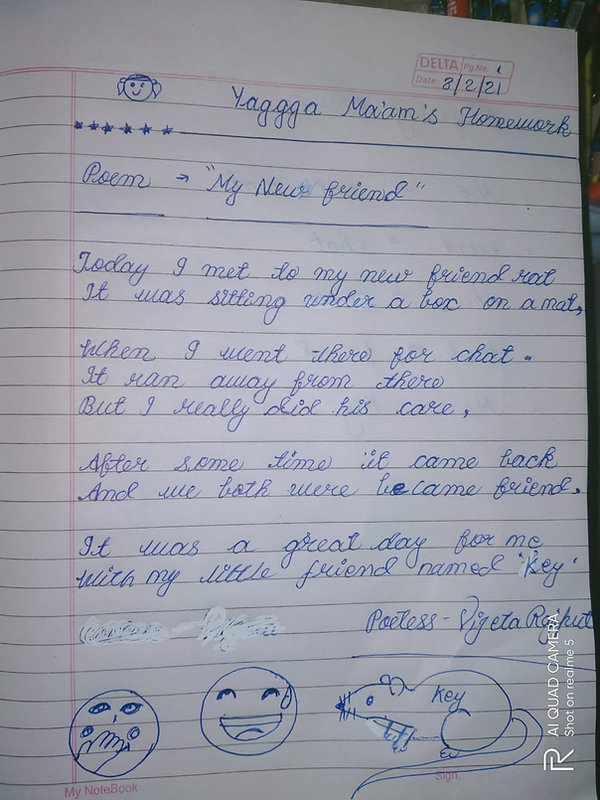 DELTA Pg No. 1
Date 3/2/21
Yaggga Ma'am's Homework
Poem → "My New friend"
Today I met to my new friend rat
It was sitting under a box on a mat,
When I went there for chat.
It ran away from there
But I really did his care,
After some time it came back
And we both were became friend.
It was a great day for me
With my little friend named 'Key'
Poetess - Vijeta Rajput
Key
Sign.
My NoteBook
AI QUAD CAMERA
Shot on realme 5